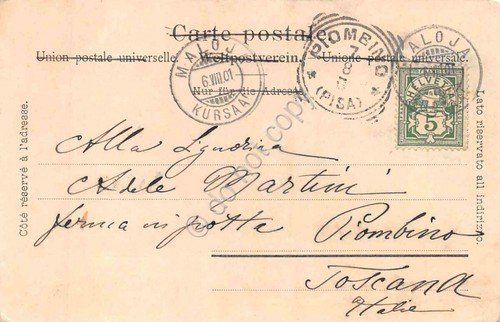 Carte postale.
Union postale universelle. Weltpostverein. Unione postale universale.
Nur für die Adresse.
MALOJA
6.VIII.01
KURSAAL
PIOMBINO
(PISA)
MALOJA
HELVETIA
5
Côté réservé à l'adresse.
Lato riservato all indirizzo.
Alla Signorina
Adele Martini
ferma in posta Piombino
Toscana
Italie